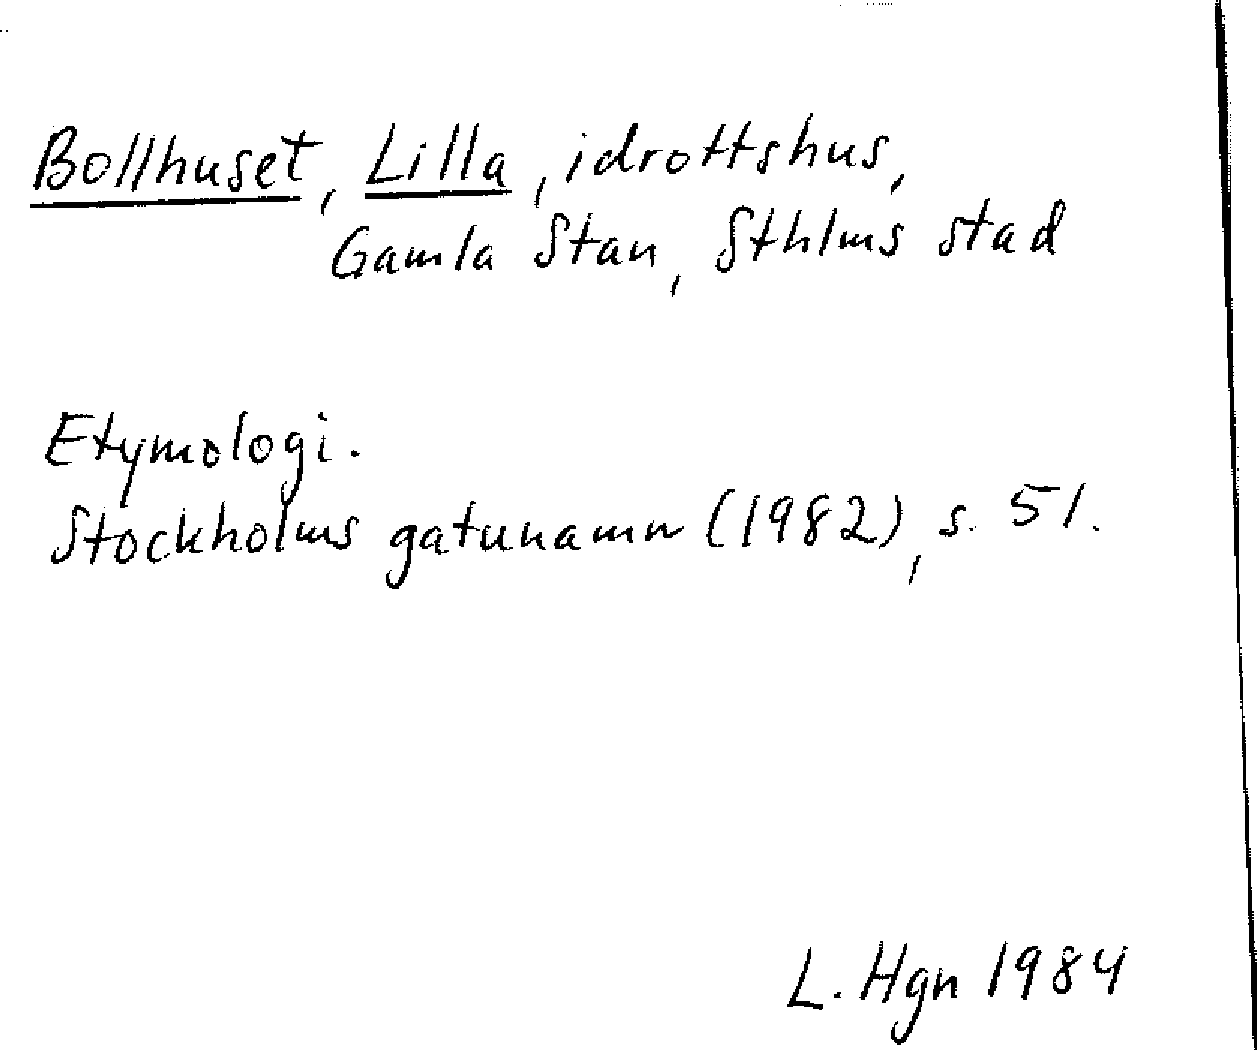 Bollhuset, Lilla, idrottshus,
Gamla Stan, Sthlms stad
Etymologi.
Stockholms gatunamn (1982), s. 51.
L. Hgn 1984